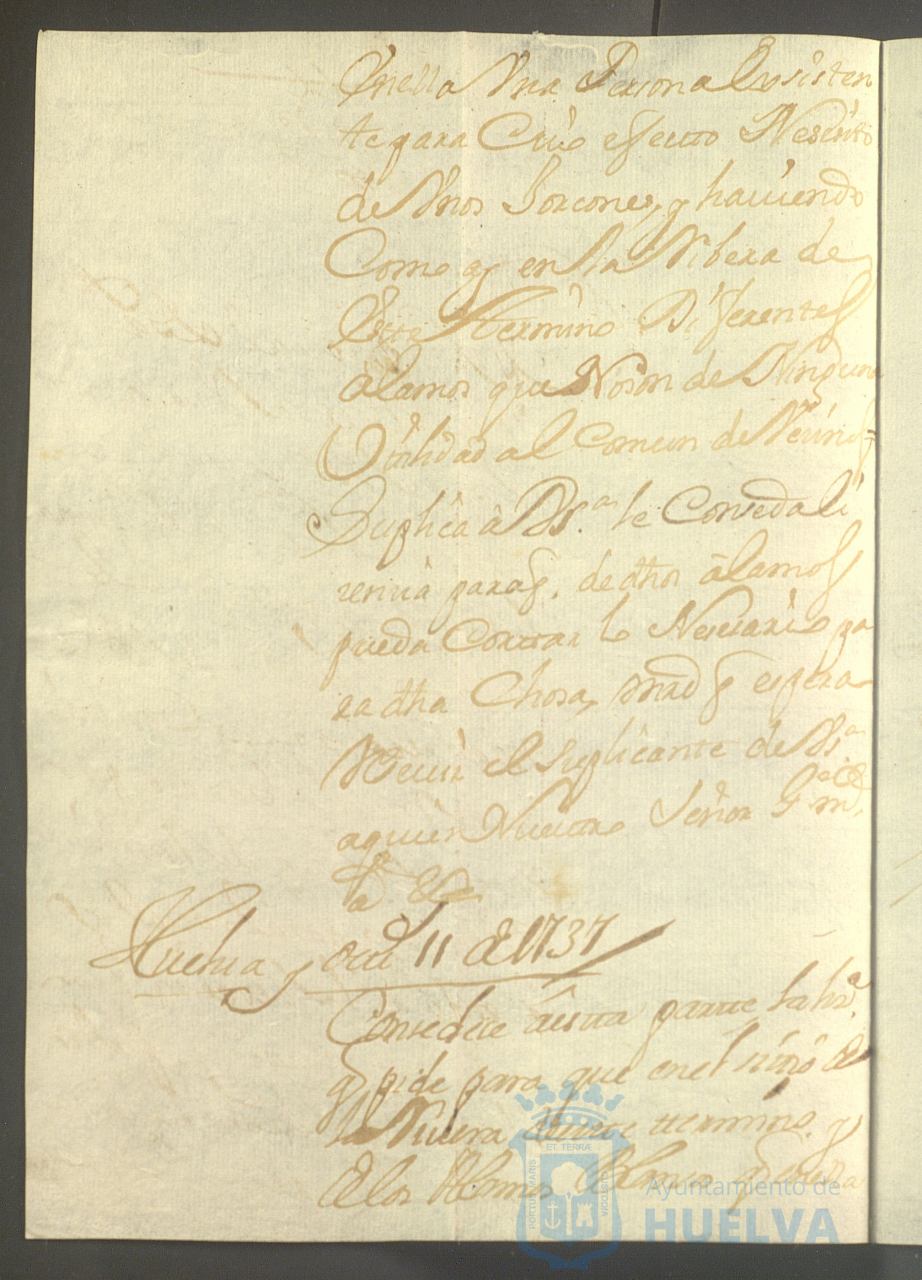 en ella Una Persona Exsisten
te para Cuio efecto Nesesito
de Unos Horcones, y haviendo
Como ay en la Ribera de
Este Termino Diferentes
alamos que No son de Ninguna
Utilidad al Comun de Vecinos
Suplica â Vsª. le Conseda li
sencia para q. de dhos âlamos
pueda Cortar lo Nesesario pa
ra dha Chosa, mrd q espera
Recivir el suplicante de Vsª
a quien Nuestro Señor Gde. ms.
as. &
Huelva y 11 de 1737
Consedese âesta parte la liza.
q pide para que en el sitio de
la Rivera termino y
de los Alamos Blancos
PORTUS MARIS
ET TERRÆ
CUSTODIA
Ayuntamiento de
HUELVA